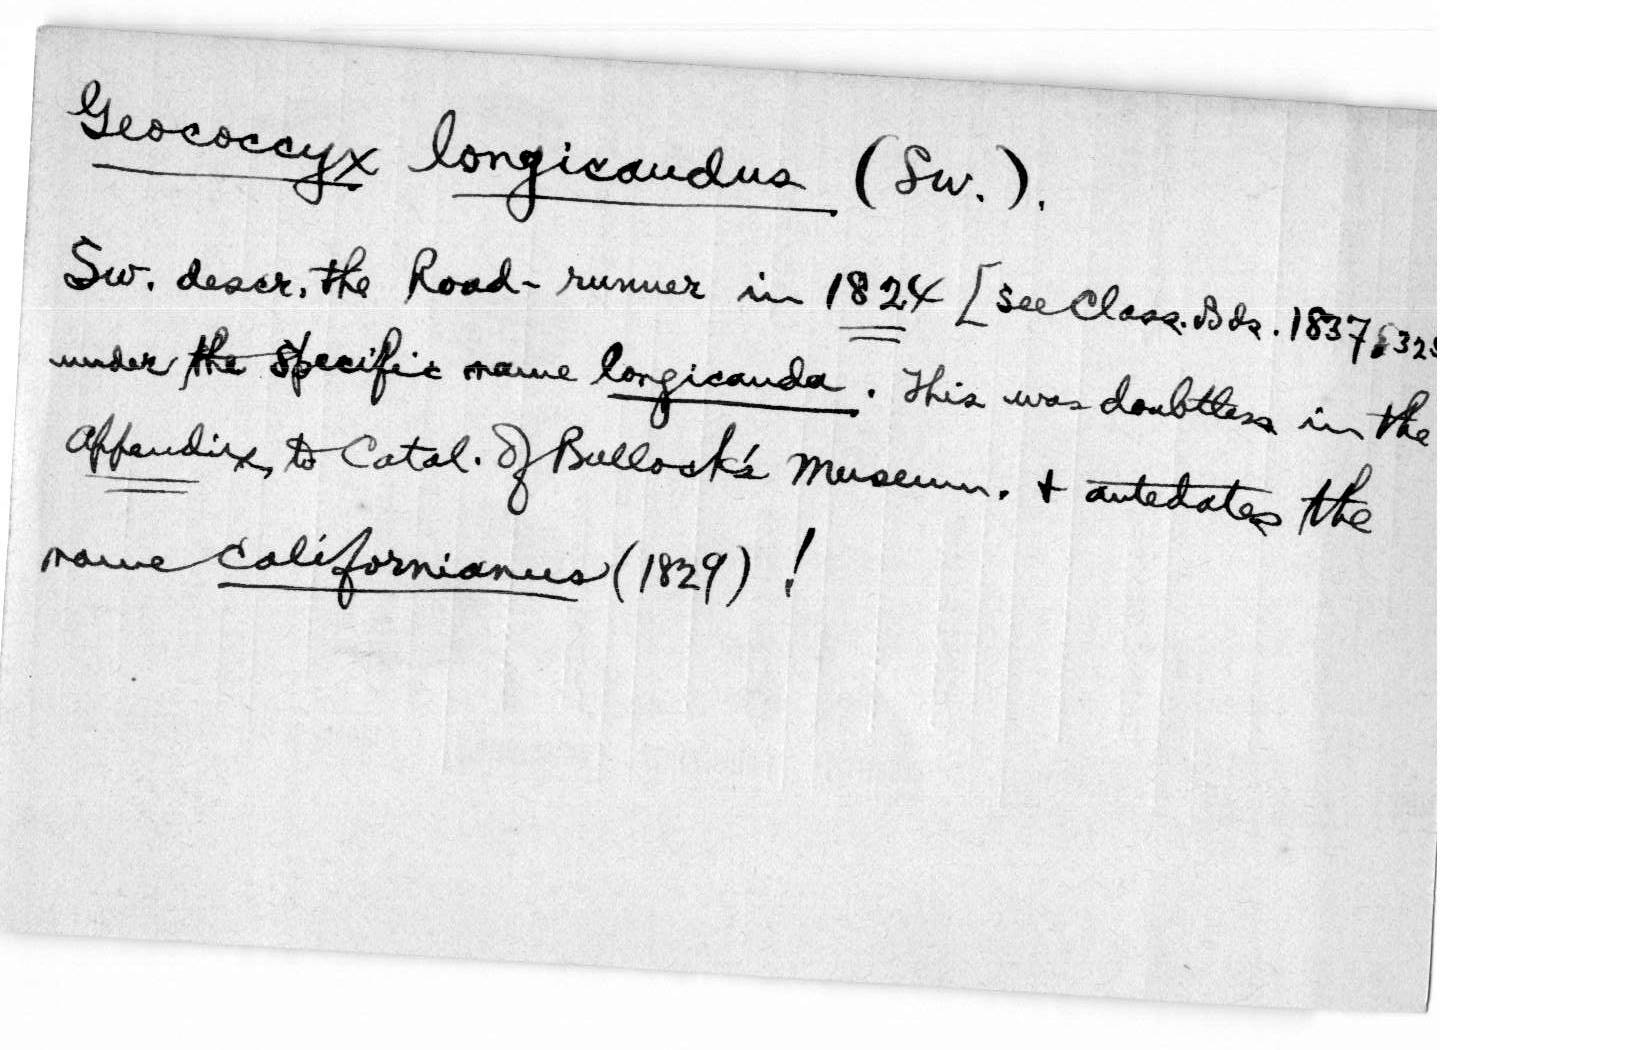 Geococcyx longicaudus (Sw.).
Sw. descr. the Road-runner in 1824 [see Class. Bds. 1837,
under the specific name longicauda. This was doubtless in the
Appendix, to Catal. of Bullock's Museum. + antedates the
name californianus (1829) !